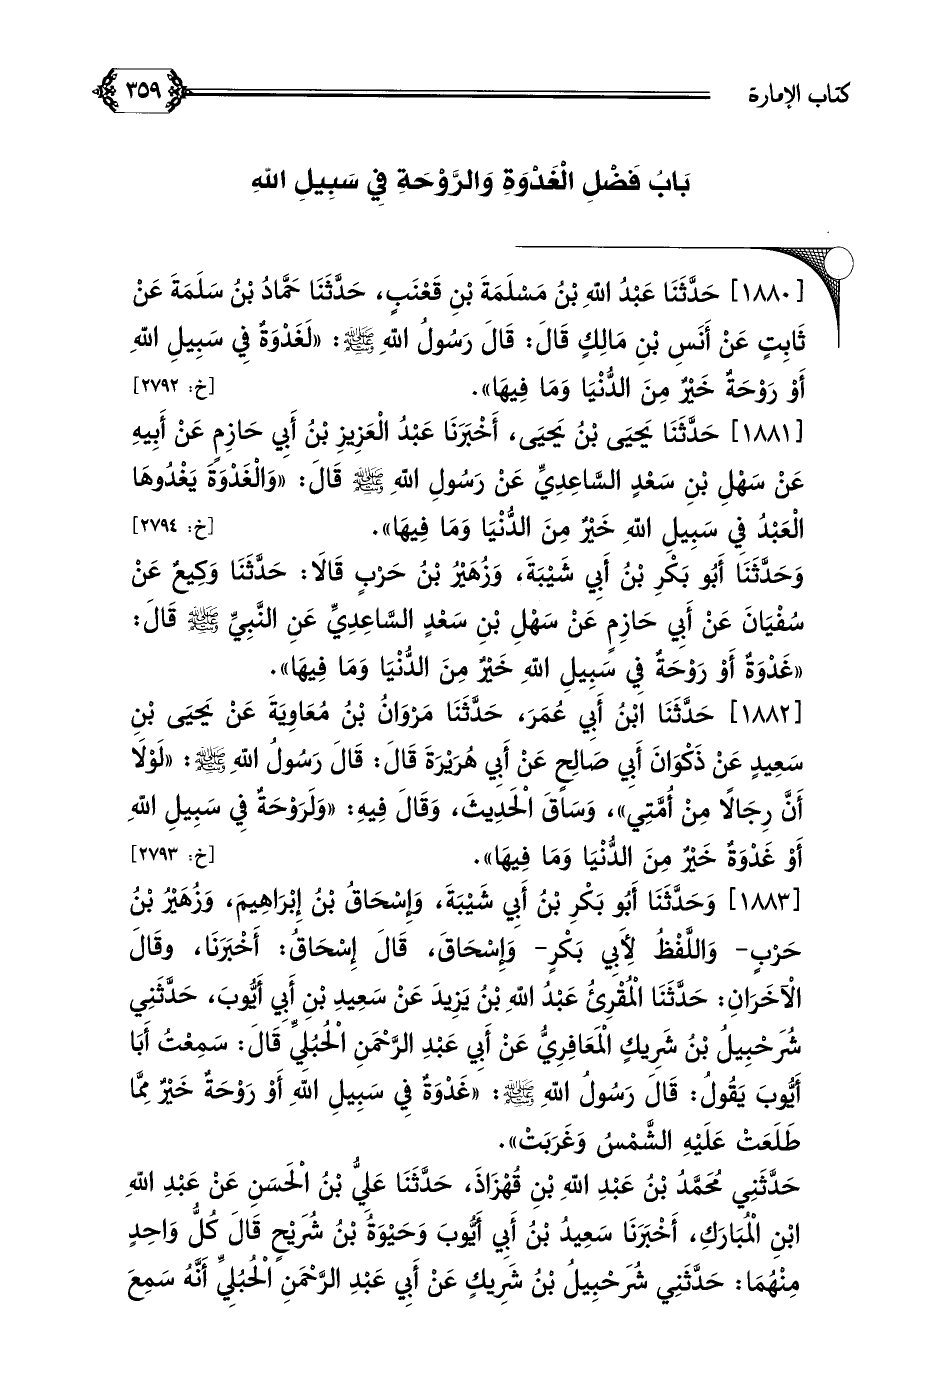 كتاب الإمارة ٣٥٩
بَابُ فَضْلِ الْغَدْوَةِ وَالرَّوْحَةِ فِي سَبِيلِ اللهِ
[١٨٨٠] حَدَّثَنَا عَبْدُ اللهِ بْنُ مَسْلَمَةَ بْنِ قَعْنَبٍ، حَدَّثَنَا حَمَّادُ بْنُ سَلَمَةَ عَنْ
ثَابِتٍ عَنْ أَنَسِ بْنِ مَالِكٍ قَالَ: قَالَ رَسُولُ اللهِ ﷺ: «لَغَدْوَةٌ فِي سَبِيلِ اللهِ
أَوْ رَوْحَةٌ خَيْرٌ مِنَ الدُّنْيَا وَمَا فِيهَا». [خ: ٢٧٩٢]
[١٨٨١] حَدَّثَنَا يَحْيَى بْنُ يَحْيَى، أَخْبَرَنَا عَبْدُ الْعَزِيزِ بْنُ أَبِي حَازِمٍ عَنْ أَبِيهِ
عَنْ سَهْلِ بْنِ سَعْدٍ السَّاعِدِيِّ عَنْ رَسُولِ اللهِ ﷺ قَالَ: «وَالْغَدْوَةَ يَغْدُوهَا
الْعَبْدُ فِي سَبِيلِ اللهِ خَيْرٌ مِنَ الدُّنْيَا وَمَا فِيهَا». [خ: ٢٧٩٤]
وَحَدَّثَنَا أَبُو بَكْرِ بْنُ أَبِي شَيْبَةَ، وَزُهَيْرُ بْنُ حَرْبٍ قَالَا: حَدَّثَنَا وَكِيعٌ عَنْ
سُفْيَانَ عَنْ أَبِي حَازِمٍ عَنْ سَهْلِ بْنِ سَعْدٍ السَّاعِدِيِّ عَنِ النَّبِيِّ ﷺ قَالَ:
«غَدْوَةٌ أَوْ رَوْحَةٌ فِي سَبِيلِ اللهِ خَيْرٌ مِنَ الدُّنْيَا وَمَا فِيهَا».
[١٨٨٢] حَدَّثَنَا ابْنُ أَبِي عُمَرَ، حَدَّثَنَا مَرْوَانُ بْنُ مُعَاوِيَةَ عَنْ يَحْيَى بْنِ
سَعِيدٍ عَنْ ذَكْوَانَ أَبِي صَالِحٍ عَنْ أَبِي هُرَيْرَةَ قَالَ: قَالَ رَسُولُ اللهِ ﷺ: «لَوْلَا
أَنَّ رِجَالًا مِنْ أُمَّتِي»، وَسَاقَ الْحَدِيثَ، وَقَالَ فِيهِ: «وَلَرَوْحَةٌ فِي سَبِيلِ اللهِ
أَوْ غَدْوَةٌ خَيْرٌ مِنَ الدُّنْيَا وَمَا فِيهَا». [خ: ٢٧٩٣]
[١٨٨٣] وَحَدَّثَنَا أَبُو بَكْرِ بْنُ أَبِي شَيْبَةَ، وَإِسْحَاقُ بْنُ إِبْرَاهِيمَ، وَزُهَيْرُ بْنُ
حَرْبٍ- وَاللَّفْظُ لِأَبِي بَكْرٍ- وَإِسْحَاقَ، قَالَ إِسْحَاقُ: أَخْبَرَنَا، وقَالَ
الْآخَرَانِ: حَدَّثَنَا الْمُقْرِئُ عَبْدُ اللهِ بْنُ يَزِيدَ عَنْ سَعِيدِ بْنِ أَبِي أَيُّوبَ، حَدَّثَنِي
شُرَحْبِيلُ بْنُ شَرِيكٍ الْمَعَافِرِيُّ عَنْ أَبِي عَبْدِ الرَّحْمَنِ الْحُبُلِيِّ قَالَ: سَمِعْتُ أَبَا
أَيُّوبَ يَقُولُ: قَالَ رَسُولُ اللهِ ﷺ: «غَدْوَةٌ فِي سَبِيلِ اللهِ أَوْ رَوْحَةٌ خَيْرٌ مِمَّا
طَلَعَتْ عَلَيْهِ الشَّمْسُ وَغَرَبَتْ».
حَدَّثَنِي مُحَمَّدُ بْنُ عَبْدِ اللهِ بْنِ قُهْزَاذَ، حَدَّثَنَا عَلِيُّ بْنُ الْحَسَنِ عَنْ عَبْدِ اللهِ
ابْنِ الْمُبَارَكِ، أَخْبَرَنَا سَعِيدُ بْنُ أَبِي أَيُّوبَ وَحَيْوَةُ بْنُ شُرَيْحٍ قَالَ كُلُّ وَاحِدٍ
مِنْهُمَا: حَدَّثَنِي شُرَحْبِيلُ بْنُ شَرِيكٍ عَنْ أَبِي عَبْدِ الرَّحْمَنِ الْحُبُلِيِّ أَنَّهُ سَمِعَ